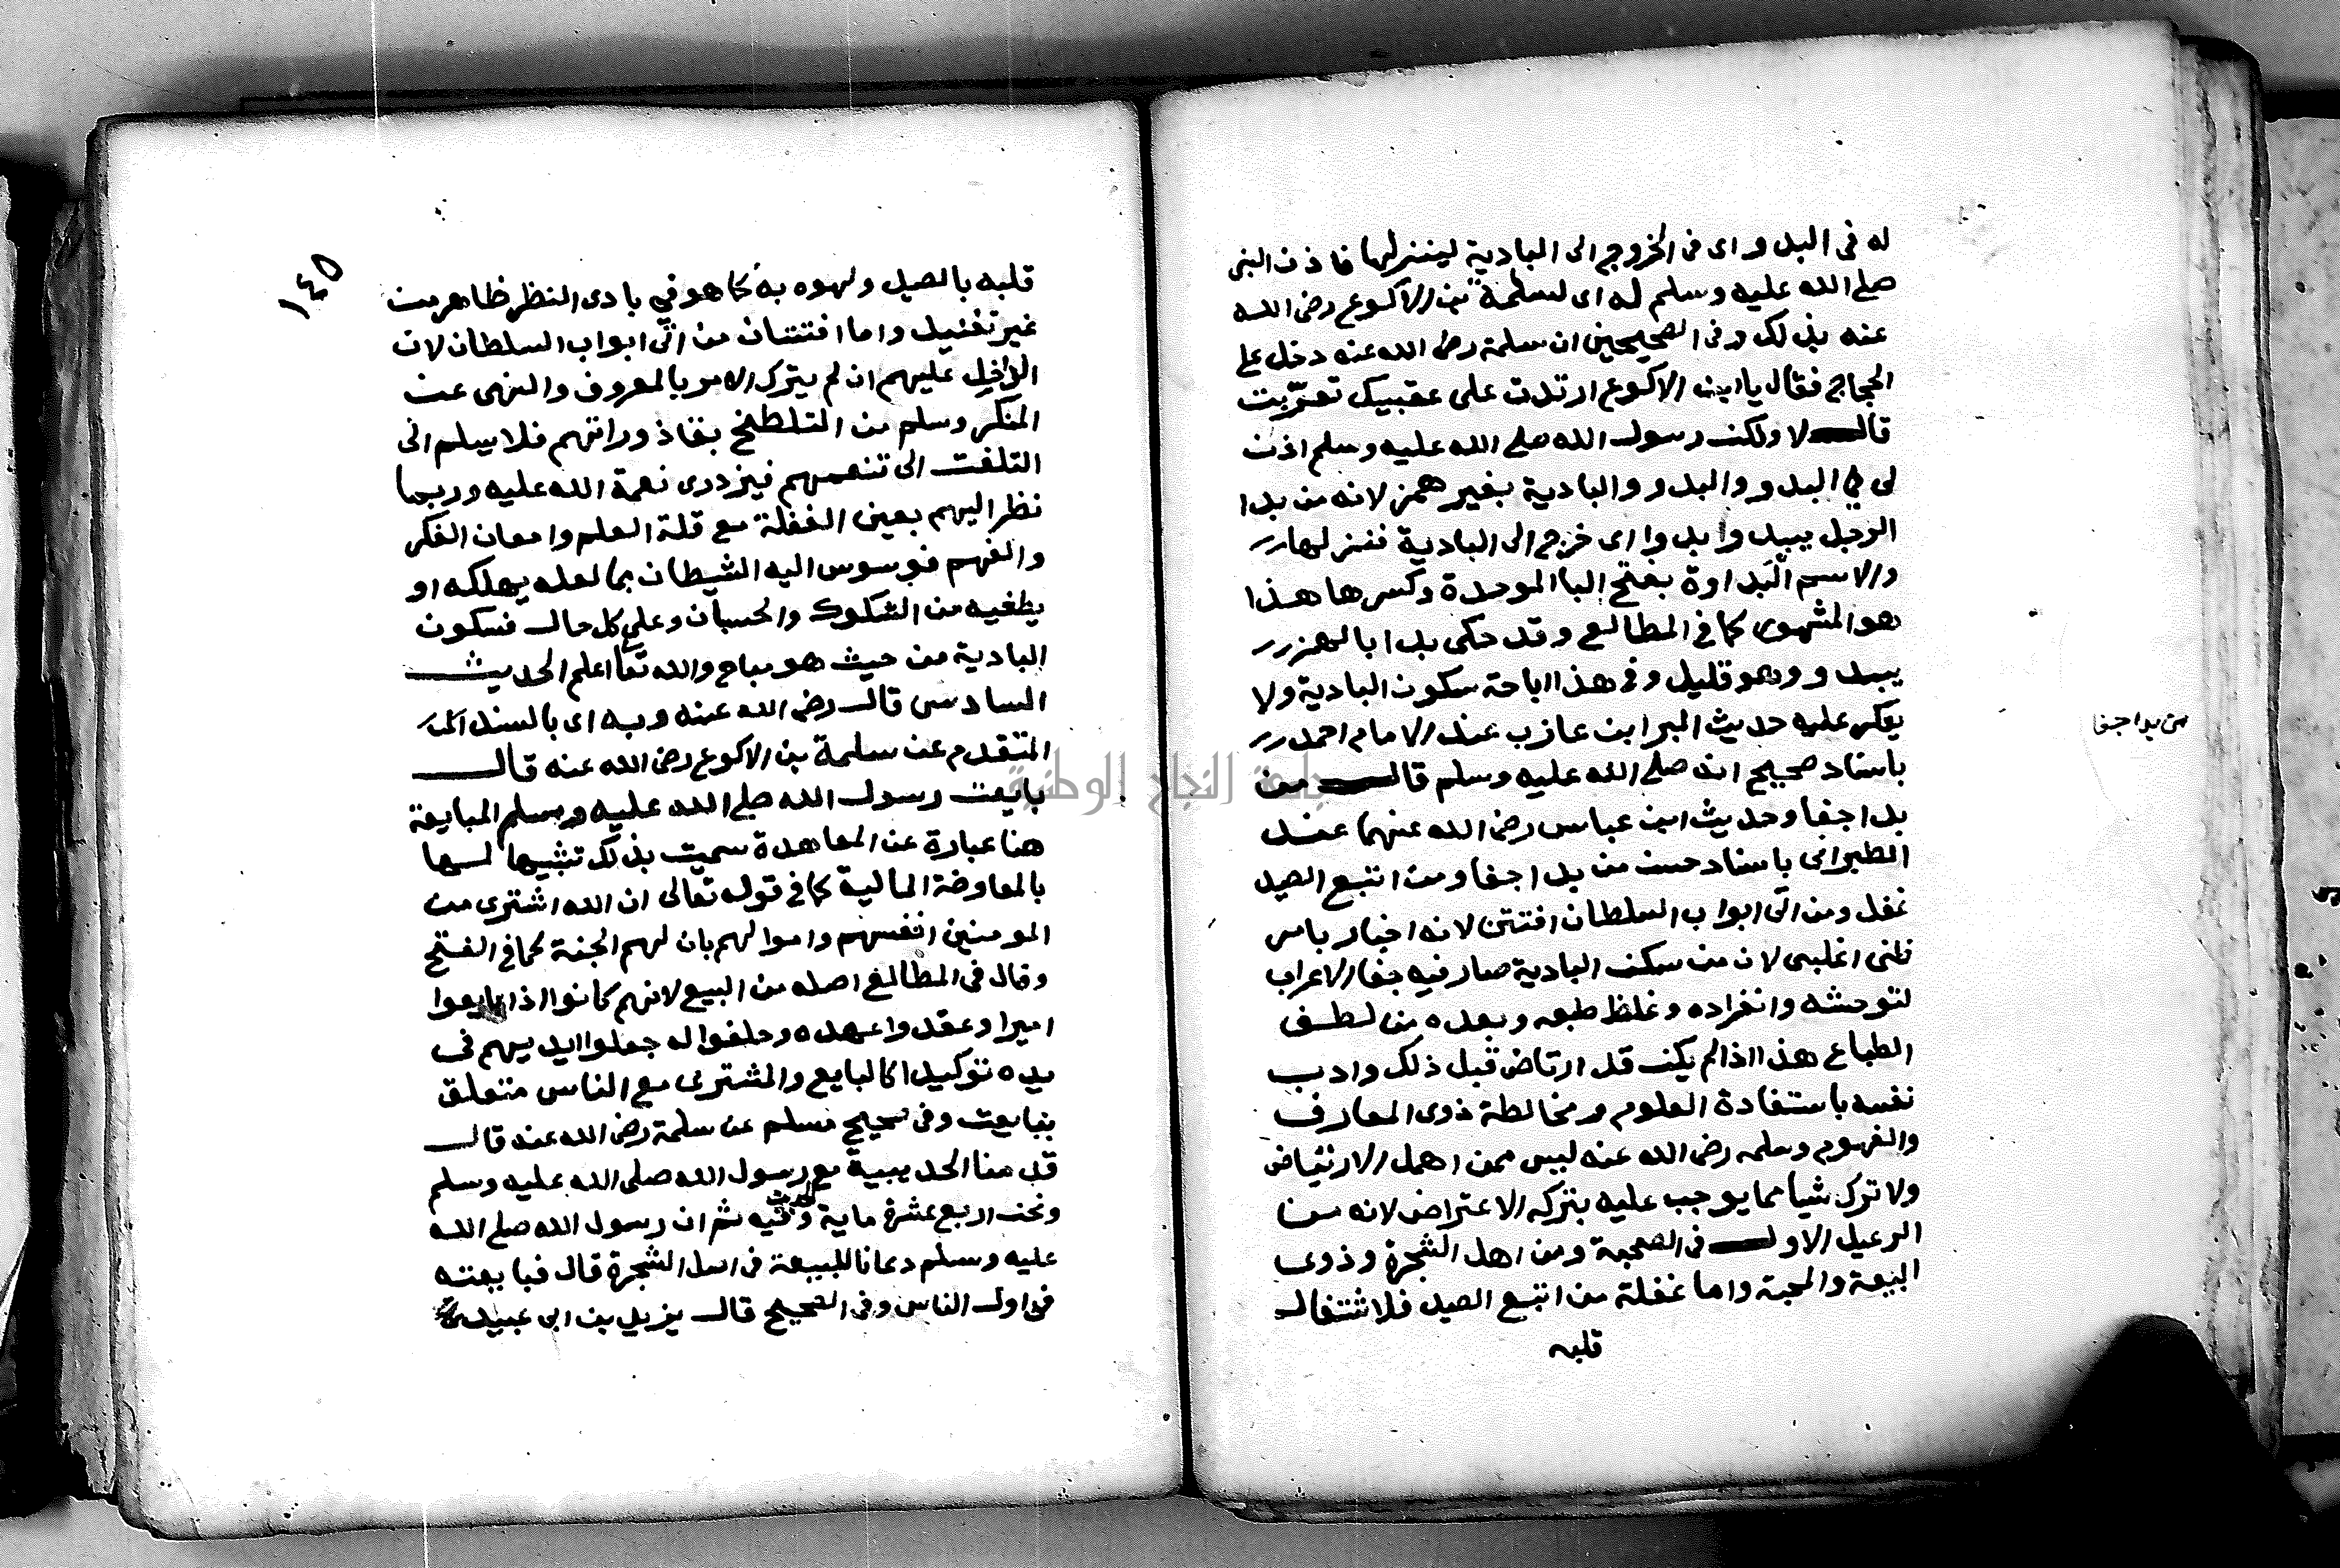 له في البدو اى فى الخروج الى البادية لينزلها فاذن النبى
صلى الله عليه وسلم له اى لسلمة بن الاكوع رضى الله
عنه بذلك وفى الصحيحين ان سلمة رضى الله عنه دخل على
الحجاج فقال يا ابن الاكوع ارتددت على عقبيك تعرّبت
قال لا ولكن رسول الله صلى الله عليه وسلم اذن
لى في البدو والبدو والبادية بغير همز لانه من بدا
الرجل يبدو وا بدوا اى خرج الى البادية فنزلها
والاسم البَداوة بفتح البا الموحدة وكسرها هذا
هو المشهور كما في المطالع وقد حكى بدا بالهمز
يبدو وهو قليل وفى هذا اباحة سكون البادية ولا
يعكر عليه حديث البرا بن عازب عند الامام احمد
باسناد صحيح انه صلى الله عليه وسلم قال من
بدا جفا وحديث ابن عباس رضى الله عنهما عند
الطبرانى باسناد حسن من بدا جفا ومن اتبع الصيد
غفل ومن اتى ابواب السلطان افتتن لانه اخبار بامر
ظنى اغلبى لان من سكن البادية صار فيه جفا الاعراب
لتوحشه وانفراده وغلظ طبعه وبعده من لطف
الطباع هذا اذا لم يكن قد ارتاض قبل ذلك وادب
نفسه باستفادة العلوم ومخالطة ذوى المعارف
والفهوم وسلمه رضى الله عنه ليس ممن اهمل الارتياض
ولا ترك شيا مما يوجب عليه بتركه الاعتراض لانه من
الرعيل الاول فى الصحبة ومن اهل الشجرة وذوى
البيعة والمحبة واما غفلة من اتبع الصيد فلاشتغال
قلبه
من بدا جفا
١٤٥
قلبه بالصيد ولهوه به كما هو في بادى النظر ظاهر من
غير تخييل واما افتتان من اتى ابواب السلطان لان
الداخل عليهم ان لم يترك الامر بالمعروف والنهى عن
المنكر وسلم من التلطخ بقاذوراتهم فلا يسلم الى
التلفت الى تنعمهم فيزدرى نعمة الله عليه وربما
نظر اليهم بعين الغفلة مع قلة العلم وامعان الفكر
والفهم فوسوس اليه الشيطان بما لعله يهلكه او
يطغيه من الشكوك والحسبان وعلى كل حال فسكون
البادية من حيث هو مباح والله تعا اعلم الحديث
السادس قال رضى الله عنه وبه اى بالسند
المتقدم عن سلمة بن الاكوع رضى الله عنه قال
بايعت رسول الله صلى الله عليه وسلم المبايعة
هنا عبارة عن المعاهدة سميت بذلك تشبيها لها
بالمعاوضة المالية كما في قوله تعالى ان الله اشترى من
المومنين انفسهم واموالهم بان لهم الجنة كما في الفتح
وقال فى المطالع اصله من البيع لانهم كانوا اذا بايعوا
اميرا وعقدوا عهده وحلفوا له جعلوا ايديهم فى
يده توكيدا كالبايع والمشترى مع الناس متعلق
ببايعت وفى صحيح مسلم عن سلمة رضى الله عنه قال
قدمنا الحديبية مع رسول الله صلى الله عليه وسلم
ونحن اربع عشرة ماية وفيه الحديث ثم ان رسول الله صلى الله
عليه وسلم دعانا للبيعة فى اصل الشجرة قال فبايعته
فى اول الناس وفى الصحيح قال يزيد بن ابى عبيد
جامعة النجاح الوطنية